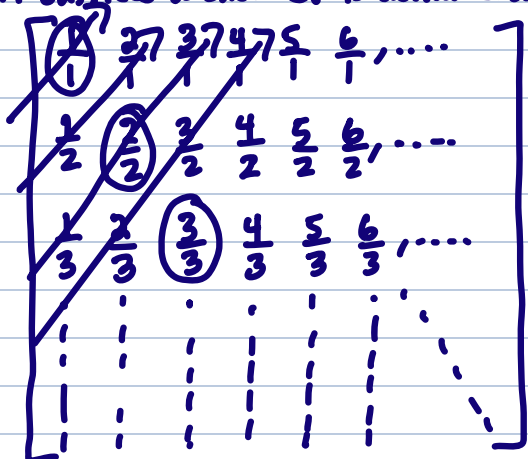 1/1 2/1 3/1 4/1 5/1 6/1 , ......
1/2 2/2 3/2 4/2 5/2 6/2 , ......
1/3 2/3 3/3 4/3 5/3 6/3 , ......